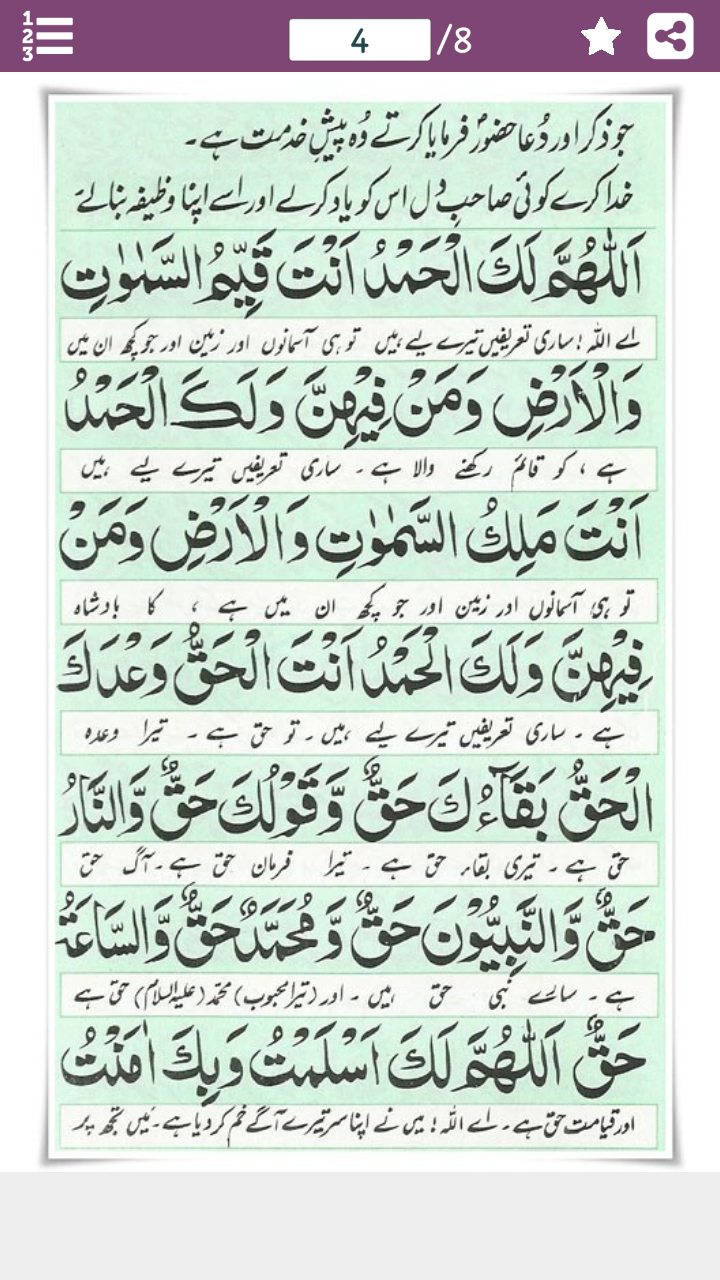 1
2
3
4 /8
جو ذکر اور دُعا حضورؐ فرمایا کرتے وُہ پیشِ خدمت ہے۔
خدا کرے کوئی صاحبِ دل اس کو یاد کرلے اور اسے اپنا وظیفہ بنالے
اَللّٰهُمَّ لَكَ الْحَمْدُ اَنْتَ قَيِّمُ السَّمٰوٰتِ
اے اللہ! ساری تعریفیں تیرے لیے ہیں تو ہی آسمانوں اور زمین اور جو کچھ ان میں
وَالْاَرْضِ وَمَنْ فِيْهِنَّ وَلَكَ الْحَمْدُ
ہے ، کو قائم رکھنے والا ہے ۔ ساری تعریفیں تیرے لیے ہیں
اَنْتَ مَلِكُ السَّمٰوٰتِ وَالْاَرْضِ وَمَنْ
تو ہی آسمانوں اور زمین اور جو کچھ ان میں ہے ، کا بادشاہ
فِيْهِنَّ وَلَكَ الْحَمْدُ اَنْتَ الْحَقُّ وَعْدُكَ
ہے ۔ ساری تعریفیں تیرے لیے ہیں ۔ تو حق ہے ۔ تیرا وعدہ
الْحَقُّ بَقَآءُكَ حَقٌّ وَّقَوْلُكَ حَقٌّ وَّالنَّارُ
حق ہے ۔ تیری بقاء حق ہے ۔ تیرا فرمان حق ہے ۔ آگ حق
حَقٌّ وَّالنَّبِيُّوْنَ حَقٌّ وَّمُحَمَّدٌ حَقٌّ وَّالسَّاعَةُ
ہے ۔ سارے نبی حق ہیں ۔ اور (تیرا محبوب) محمد (علیہ السلام) حق ہے
حَقٌّ اَللّٰهُمَّ لَكَ اَسْلَمْتُ وَبِكَ اٰمَنْتُ
اور قیامت حق ہے ۔ اے اللہ! میں نے اپنا سر تیرے آگے خم کر دیا ہے ۔ میں تجھ پر